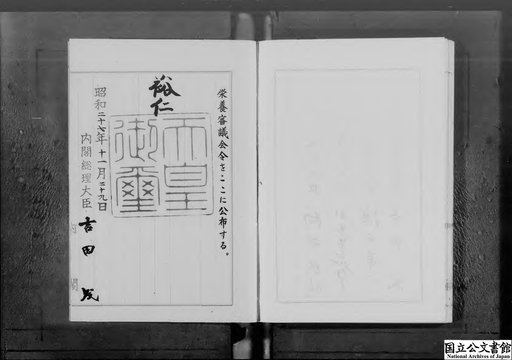 栄養審議会令をここに公布する。
裕仁
天皇御璽
昭和二十七年十一月二十九日
内閣総理大臣
吉田茂
内閣
国立公文書館
National Archives of Japan